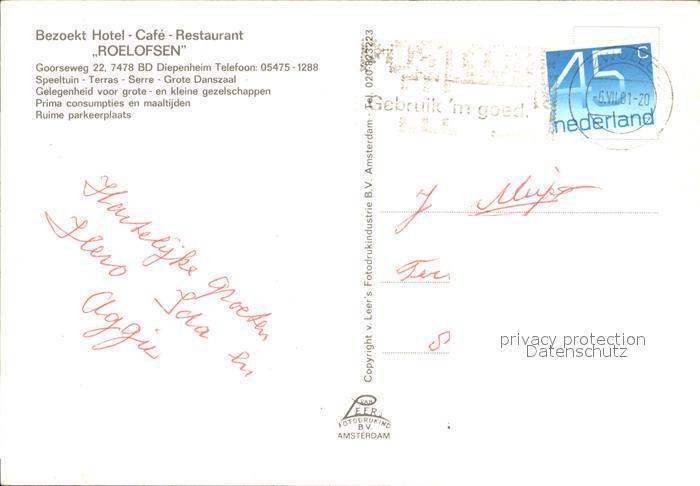 Bezoekt Hotel - Café - Restaurant
„ROELOFSEN"
Goorseweg 22, 7478 BD Diepenheim Telefoon: 05475 - 1288
Speeltuin - Terras - Serre - Grote Danszaal
Gelegenheid voor grote - en kleine gezelschappen
Prima consumpties en maaltijden
Ruime parkeerplaats
Hartelijke groeten
Ida en
Aggie
Copyright v. Leer's Fotodrukindustrie B.V. Amsterdam - Tel. 020-823223
VAN
LEER'S
FOTODRUKIND
B.V.
AMSTERDAM
Gebruik 'm goed.
45 c
nederland
-6.VII.81-20
J
privacy protection
Datenschutz